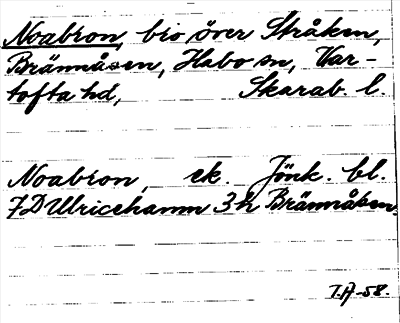 Noabron, bro över Stråken,
Brännåsen, Habo sn, Var-
tofta hd, Skarab. l.
Noabron, ek. Jönk. bl.
7D Ulricehamn 3h Brännåsen.
T.A-58.